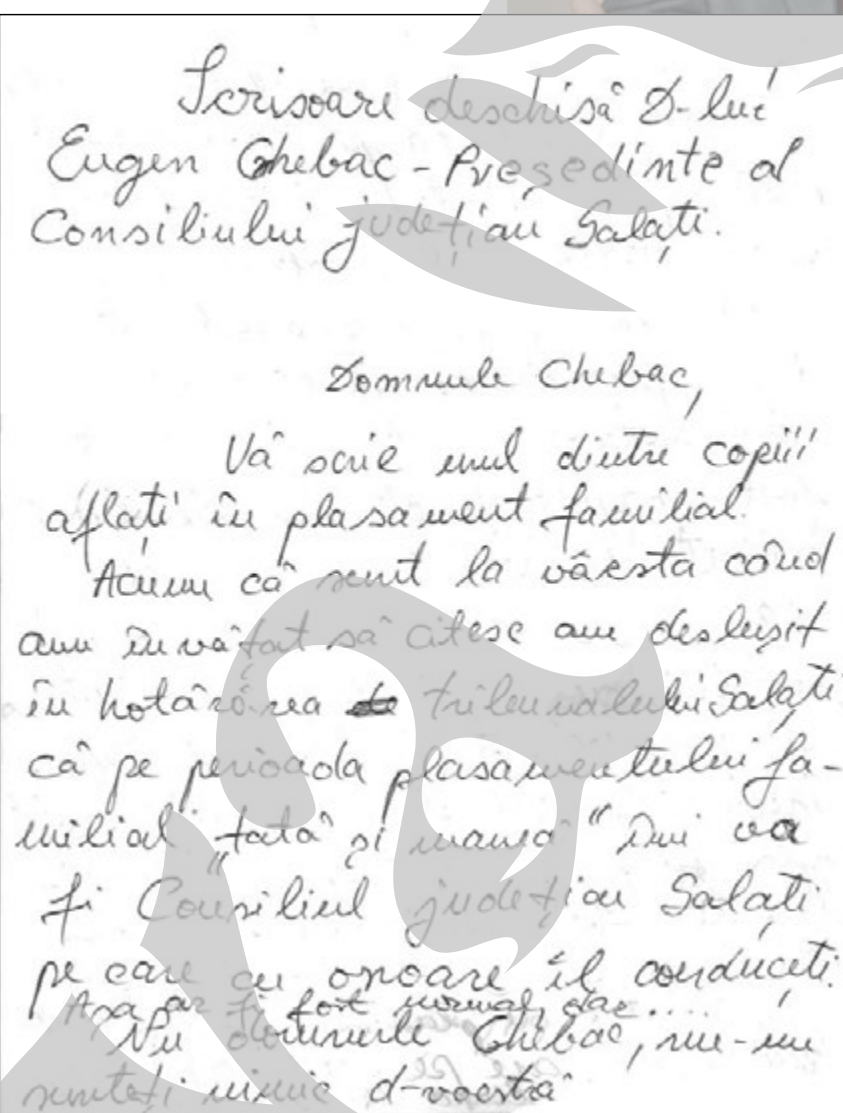 Scrisoare deschisă D-lui
Eugen Chebac - Președinte al
Consiliului județian Galați.
Domnule Chebac,
Vă scrie unul dintre copiii
aflați în plasament familial.
Acum că sunt la vârsta când
am învățat să citesc am deslușit
în hotărârea tribunalului Galați
că pe perioada plasamentului fa-
milial „tată și mamă" îmi va
fi Consiliul județian Galați
pe care cu onoare îl conduceți.
Așa ar fi fost normal, dar....
Nu domnule Chebac, nu-mi
sunteți nimic d-voastră